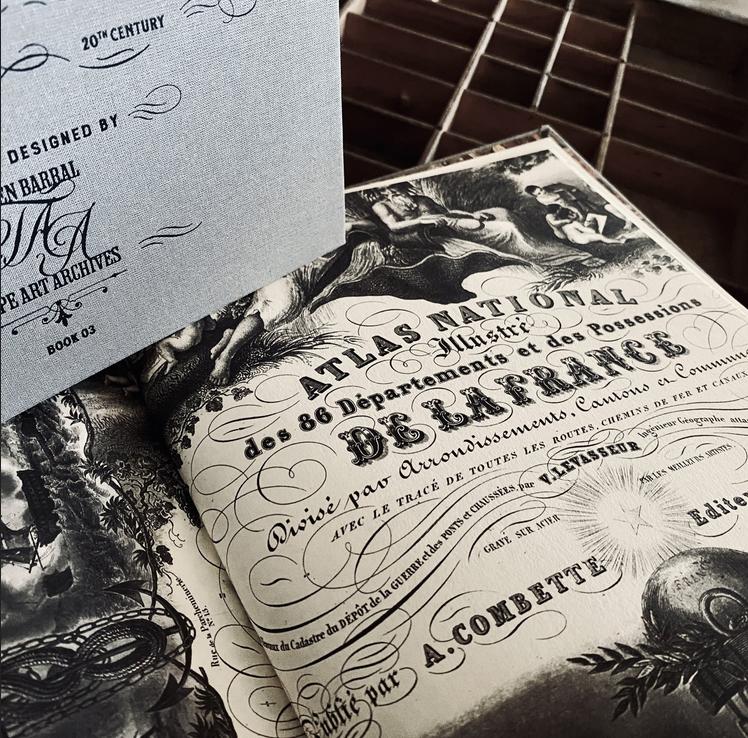 20TH CENTURY
DESIGNED BY
EN BARRAL
TAA
PE ART ARCHIVES
BOOK 03
ATLAS NATIONAL
Illustré
des 86 Départements et des Possessions
DE LA FRANCE
Divisé par Arrondissements, Cantons et Commun
AVEC LE TRACÉ DE TOUTES LES ROUTES, CHEMINS DE FER ET CANAUX
par V. LEVASSEUR Ingénieur Géographe atta
du Cadastre du DÉPÔT de la GUERRE et des PONTS et CHAUSSÉES,
GRAVÉ SUR ACIER
PAR LES MEILLEURS ARTISTES.
Publié par A. COMBETTE Edite
Rue de la Parcheminerie N° 15.
FRANCE